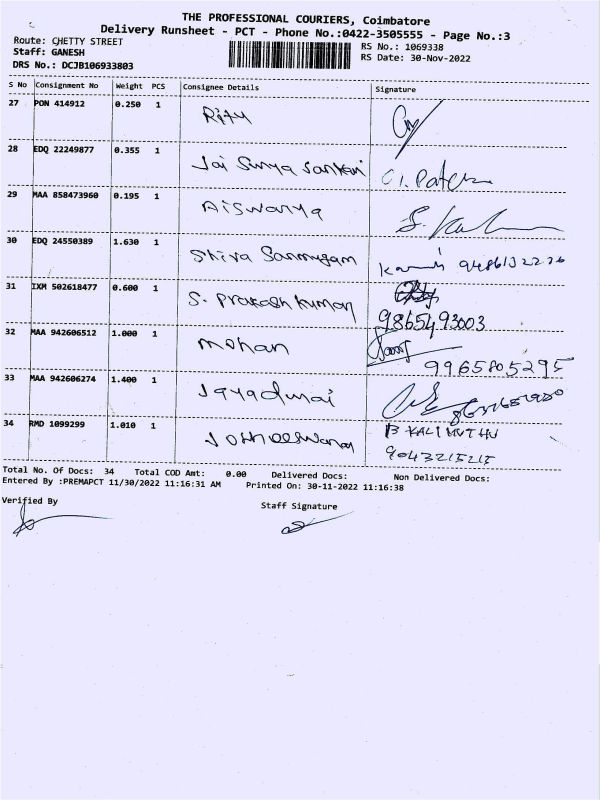 THE PROFESSIONAL COURIERS, Coimbatore
Delivery Runsheet - PCT - Phone No.:0422-3505555 - Page No.:3
Route: CHETTY STREET
RS No.: 1069338
Staff: GANESH
RS Date: 30-Nov-2022
DRS No.: DCJB106933803
S No Consignment No Weight PCS Consignee Details Signature
27 PON 414912 0.250 1 Ritu
28 EDQ 22249877 0.355 1 Jai Surya Sankari
29 MAA 858473960 0.195 1 Aiswarya
30 EDQ 24550389 1.630 1 Shiva Sanmugam
31 IXM 502618477 0.600 1 S. Prakash Kumar
9865493003
32 MAA 942606512 1.000 1 mohan
9965805295
33 MAA 942606274 1.400 1 Jayadurai
34 RMD 1099299 1.010 1 B KALIMUTHU
Total No. Of Docs: 34 Total COD Amt: 0.00 Delivered Docs: Non Delivered Docs:
Entered By :PREMAPCT 11/30/2022 11:16:31 AM Printed On: 30-11-2022 11:16:38
Verified By
Staff Signature